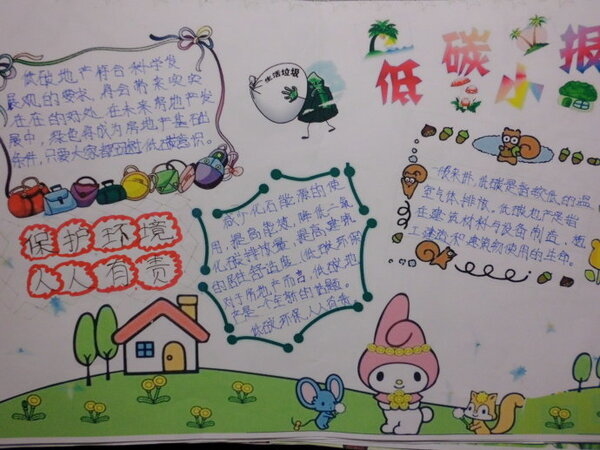 低碳小报
低碳地产符合科学发
展观的要求,将会带来实实
在在的好处,在未来房地产发
展中,绿色将成为房地产基础
条件,只要大家都树低碳意识。
生活垃圾
保护环境
人人有责
减少化石能源的使
用,提高能效,降低二氧
化碳排放量,提高建筑
的居住舒适度(低碳环保
对于房地产而言,低碳地
产是一个全新的话题。
低碳环保,人人有责。
一般来讲,低碳是指较低的温
室气体排放。低碳地产是指
在建筑材料与设备制造、施
工建造和建筑物使用的